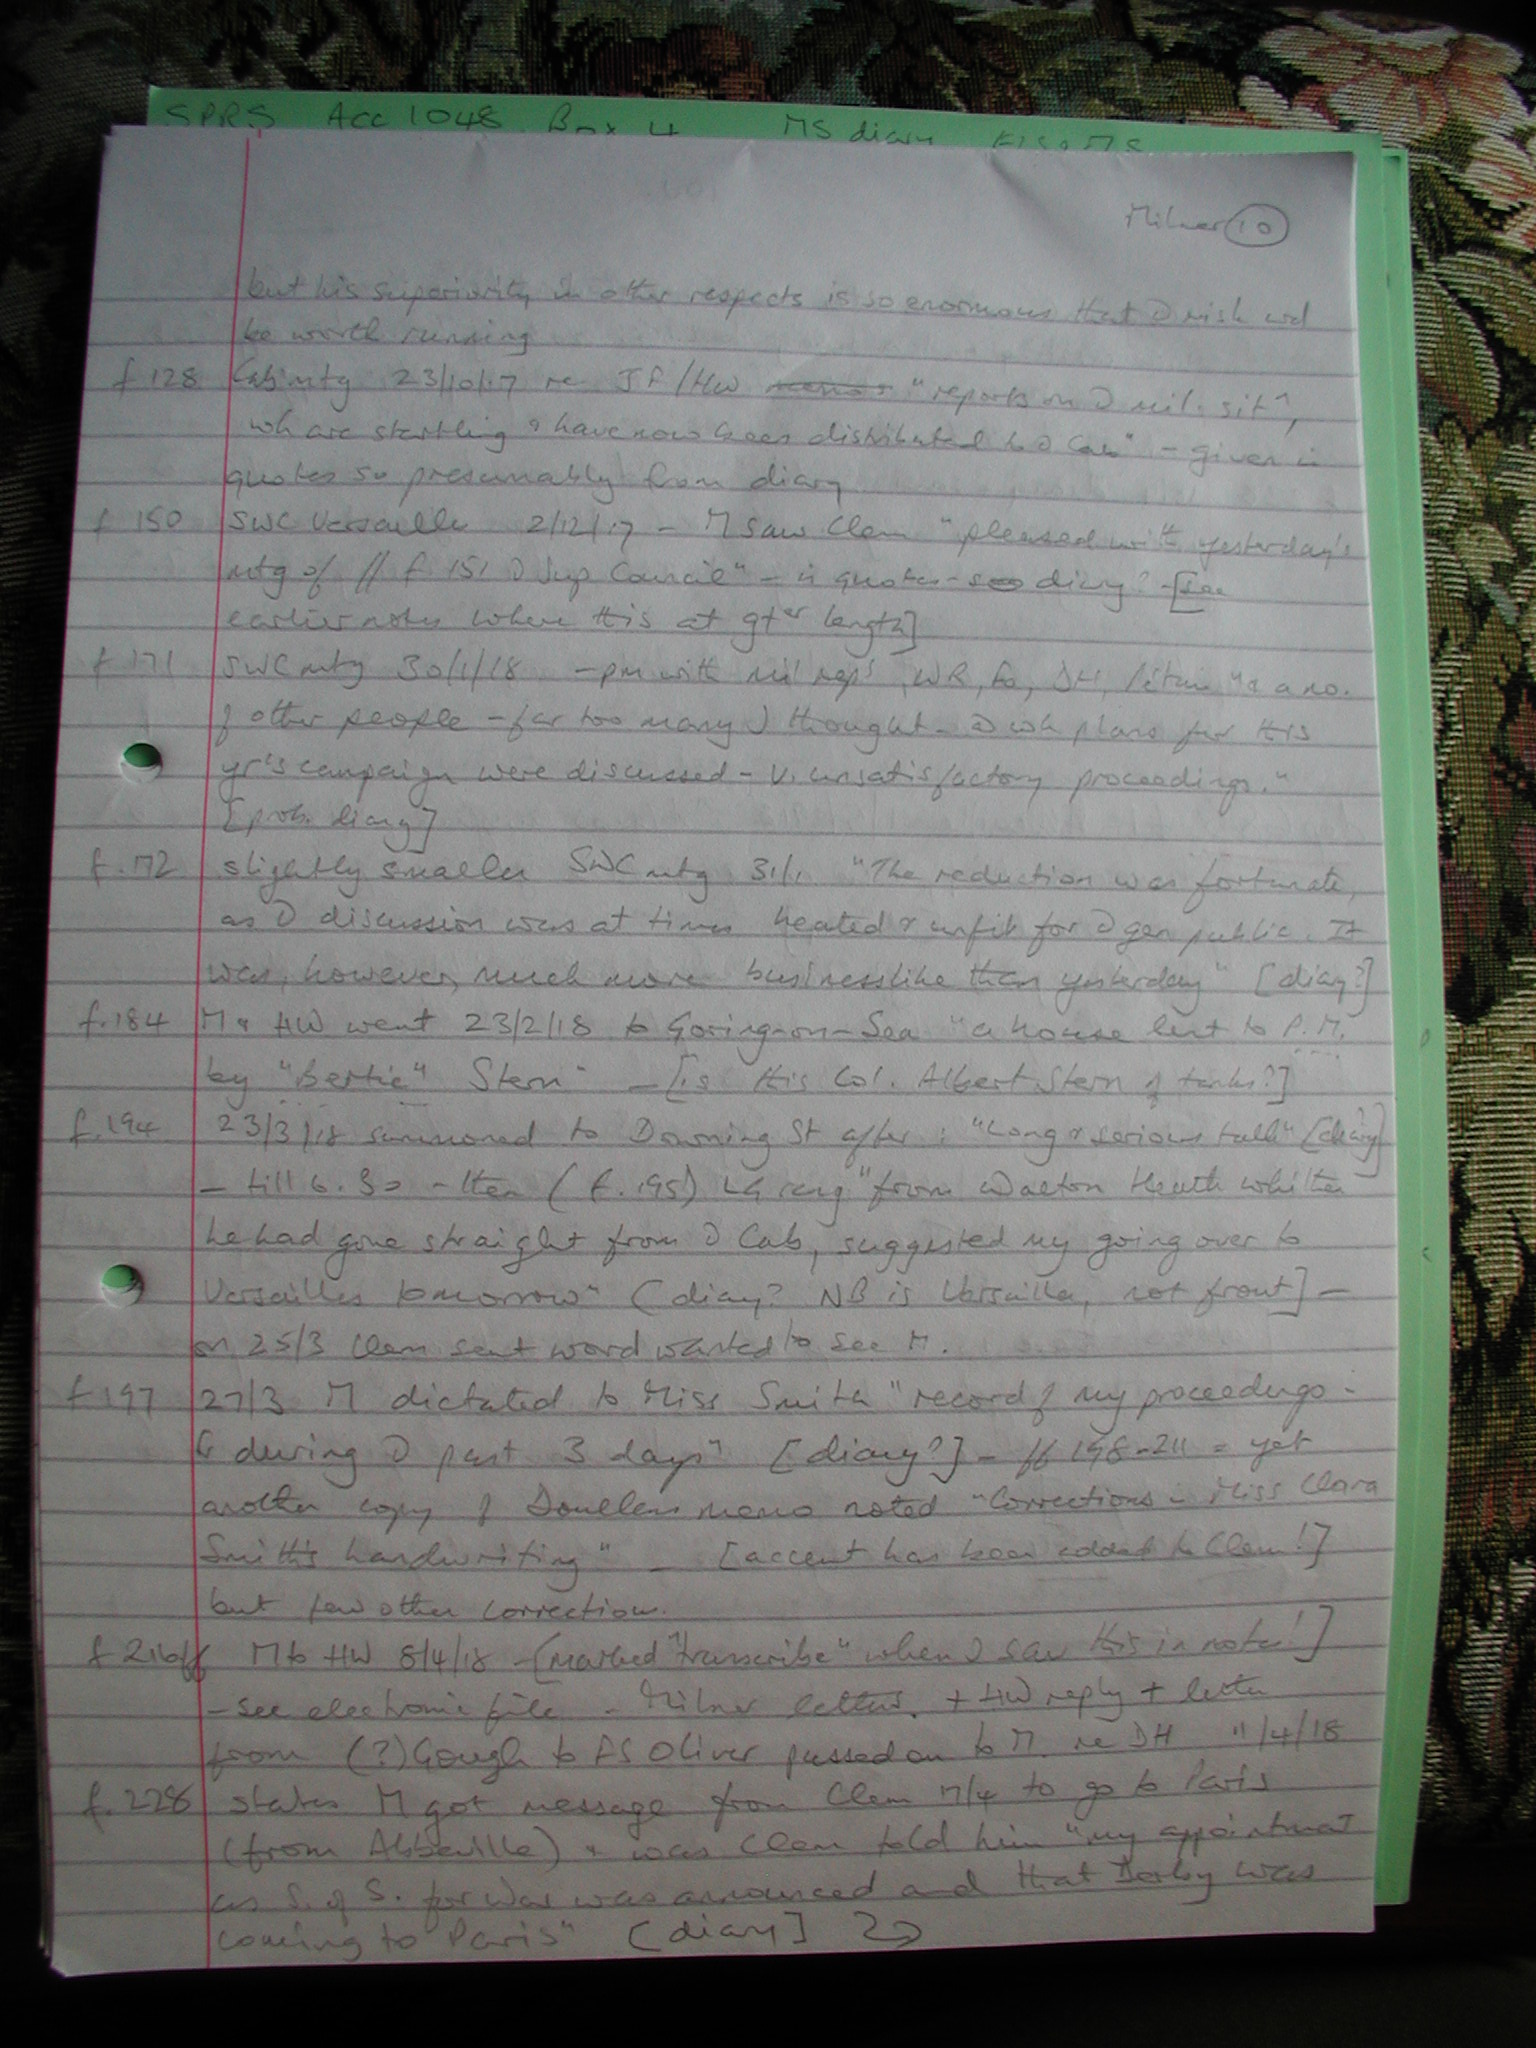 SPRS Acc 1048 Box 4 MS diary
Milner 10
but his superiority in other respects is so enormous that D risk wd
be worth running
f 128 Cab mtg 23/10/17 re JF/HW "reports on D mil. sit^n,
wh are startling & have now been distributed to D Cab" - given in
quotes so presumably from diary
f 150 SWC Versailles 2/12/17 - M saw Clem "pleased with yesterday's
mtg of // f 151 D Sup Council" - in quotes - so diary? - [see
earlier notes where this at gt^er length]
f 171 SWC mtg 30/1/18 - pm with mil reps, WR, Fo, DH, Pétain "& a no.
of other people - far too many I thought - D wh plans for this
yr's campaign were discussed - v. unsatisfactory proceedings."
[prob. diary]
f.172 slightly smaller SWC mtg 31/1 "The reduction was fortunate,
as D discussion was at times heated & unfit for D gen public. It
was, however, much more businesslike than yesterday" [diary?]
f.184 M & HW went 23/2/18 to Goring-on-Sea "a house lent to P.M.
by "Bertie" Stern" - [is this Col. Albert Stern of tanks?]
f.194 23/3/18 summoned to Downing St after: "Long & serious talk" [diary]
- till 6.30 - then (f.195) LG rang "from Walton Heath whither
he had gone straight from D Cab, suggested my going over to
Versailles tomorrow" [diary? NB is Versailles, not front] -
on 25/3 Clem sent word wanted to see M.
f 197 27/3 M dictated to Miss Smith "record of my proceedings
during D past 3 days" [diary?] - ff 198-211 = yet
another copy of Doullens memo noted "Corrections in Miss Clara
Smith's handwriting" - [accent has been added to Clem!]
but few other corrections.
f 216ff M to HW 8/4/18 - [marked "transcribe" when I saw this in notes!]
- see electronic file - Milner letters. + HW reply + letter
from (?) Gough to FS Oliver passed on to M. re DH 11/4/18
f.228 states M got message from Clem 17/4 to go to Paris
(from Abbeville) & was Clem told him "my appointment
as S. of S. for War was announced and that Derby was
coming to Paris" [diary]